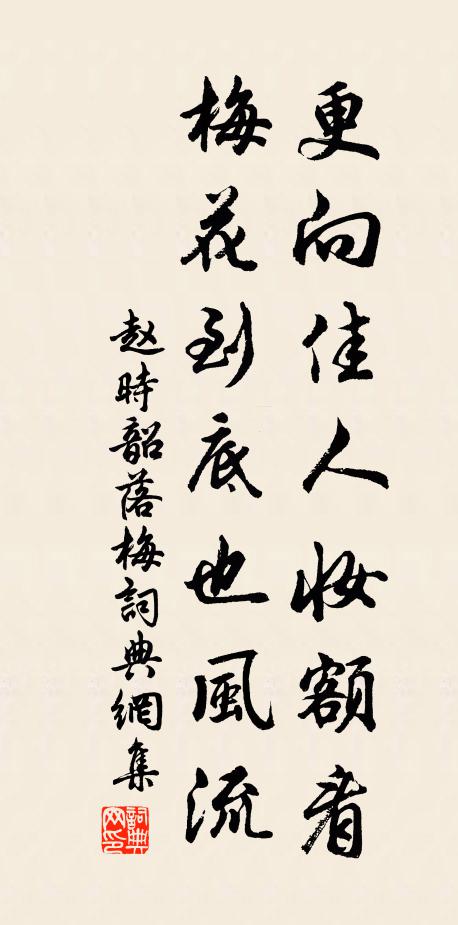 更向佳人妝額看
梅花到底也風流
赵時韶落梅詞典網集
詞典網印